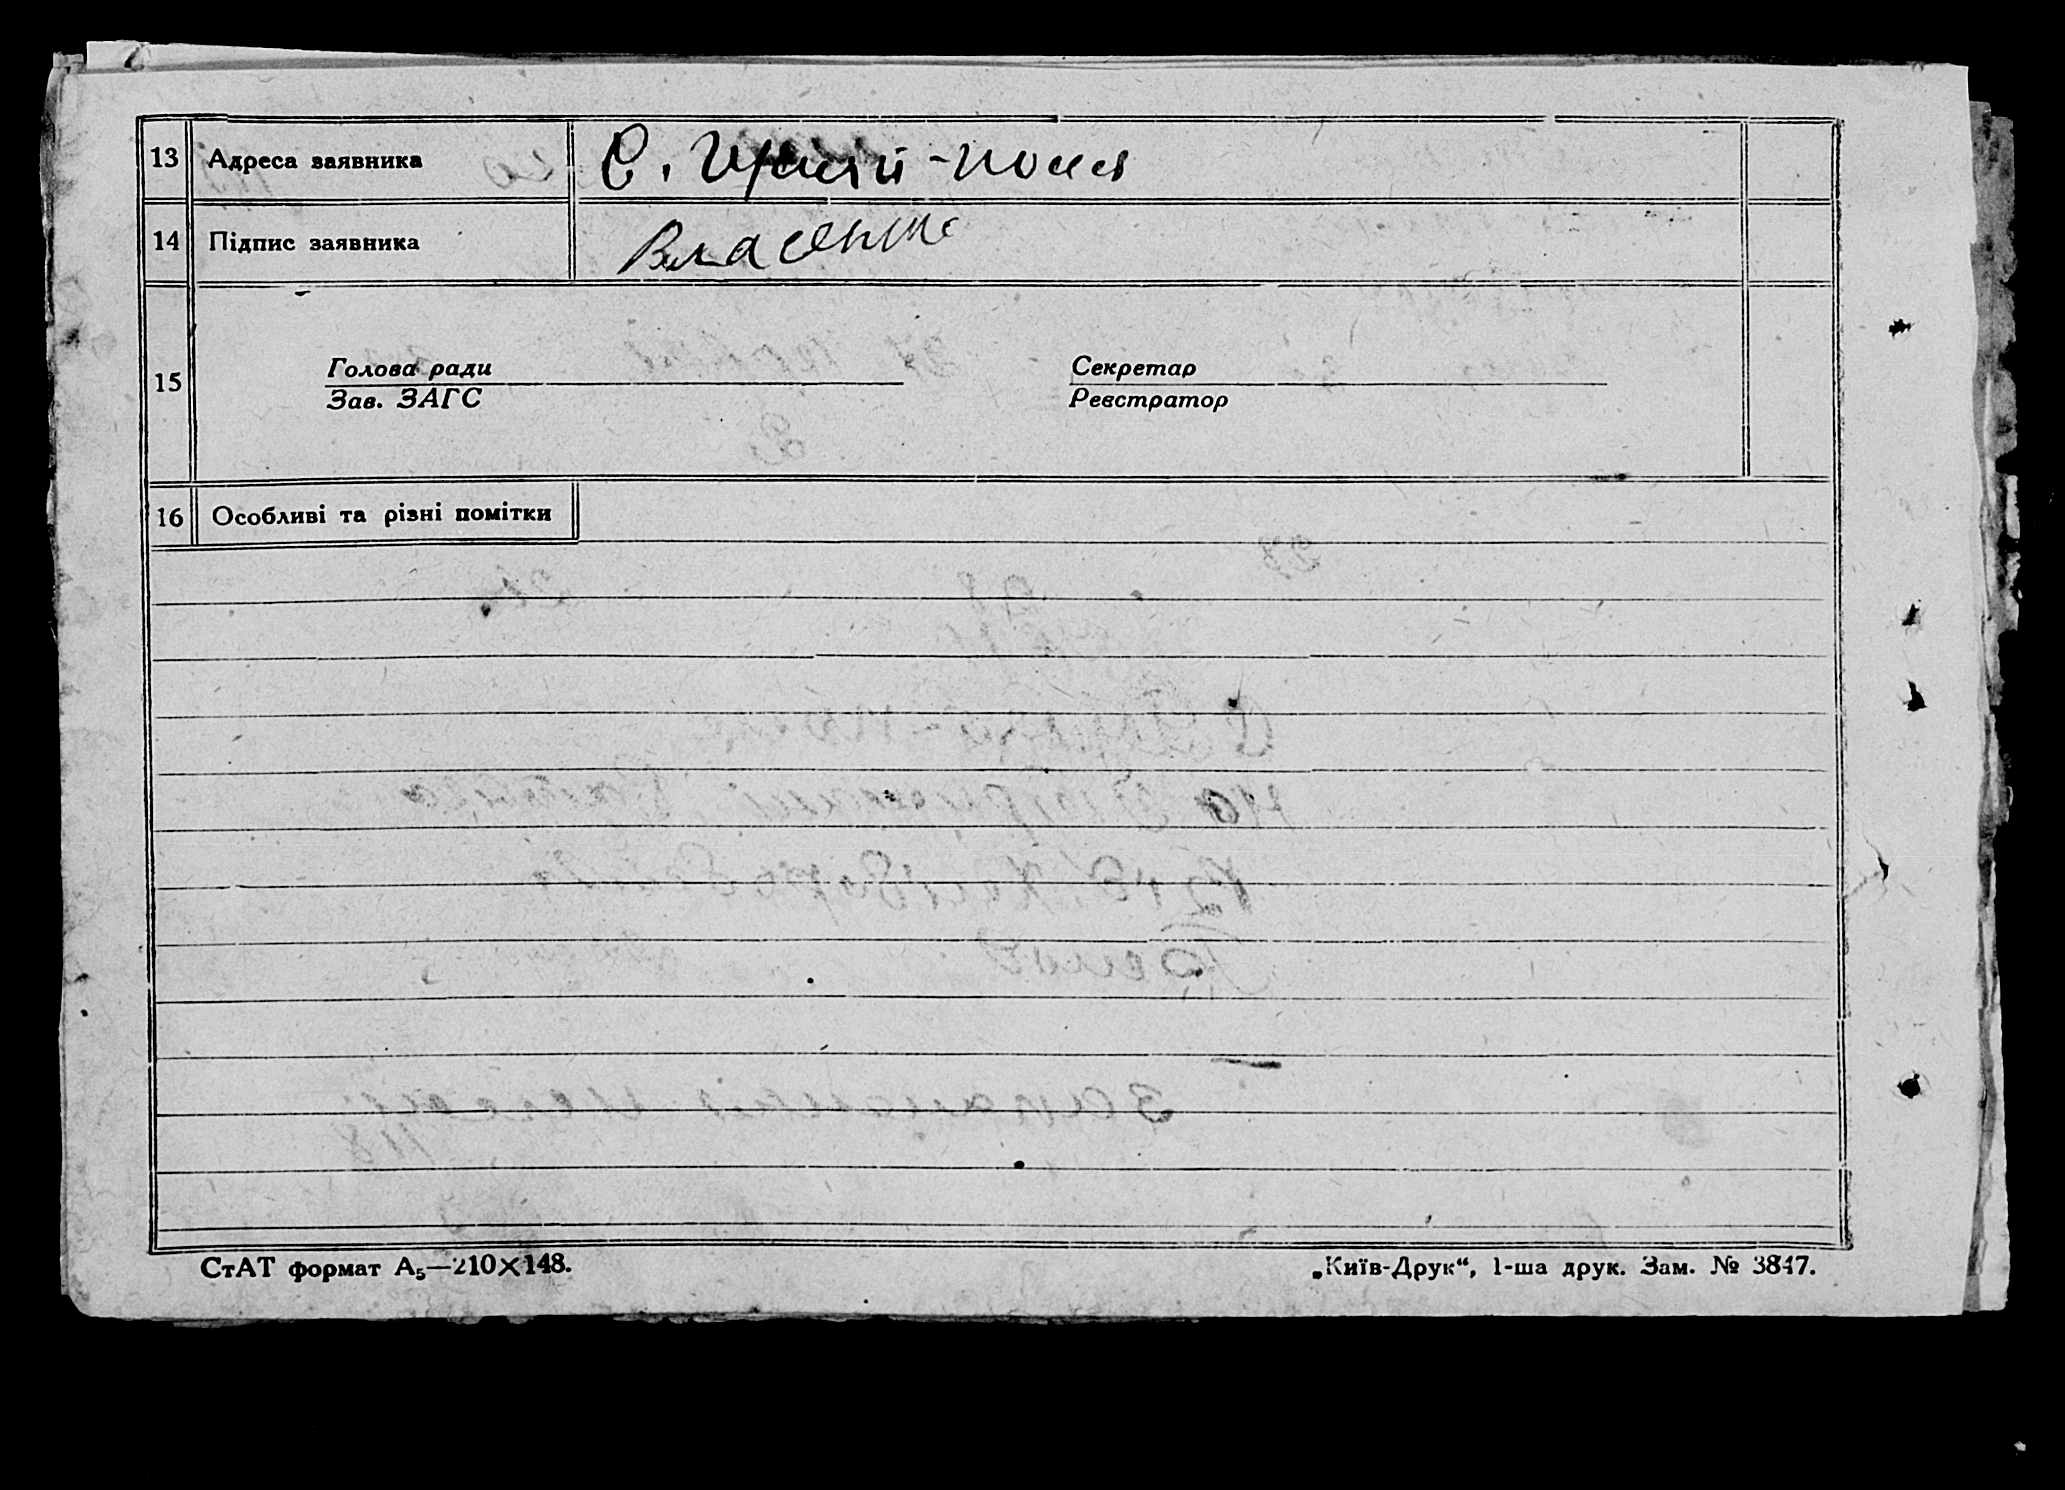 13 Адреса заявника С. Гуляй-поля
14 Підпис заявника Власенко
15 Голова ради Секретар
Зав. ЗАГС Реєстратор
16 Особливі та різні помітки
СтАТ формат А₅—210×148. „Київ-Друк“, 1-ша друк. Зам. № 3847.